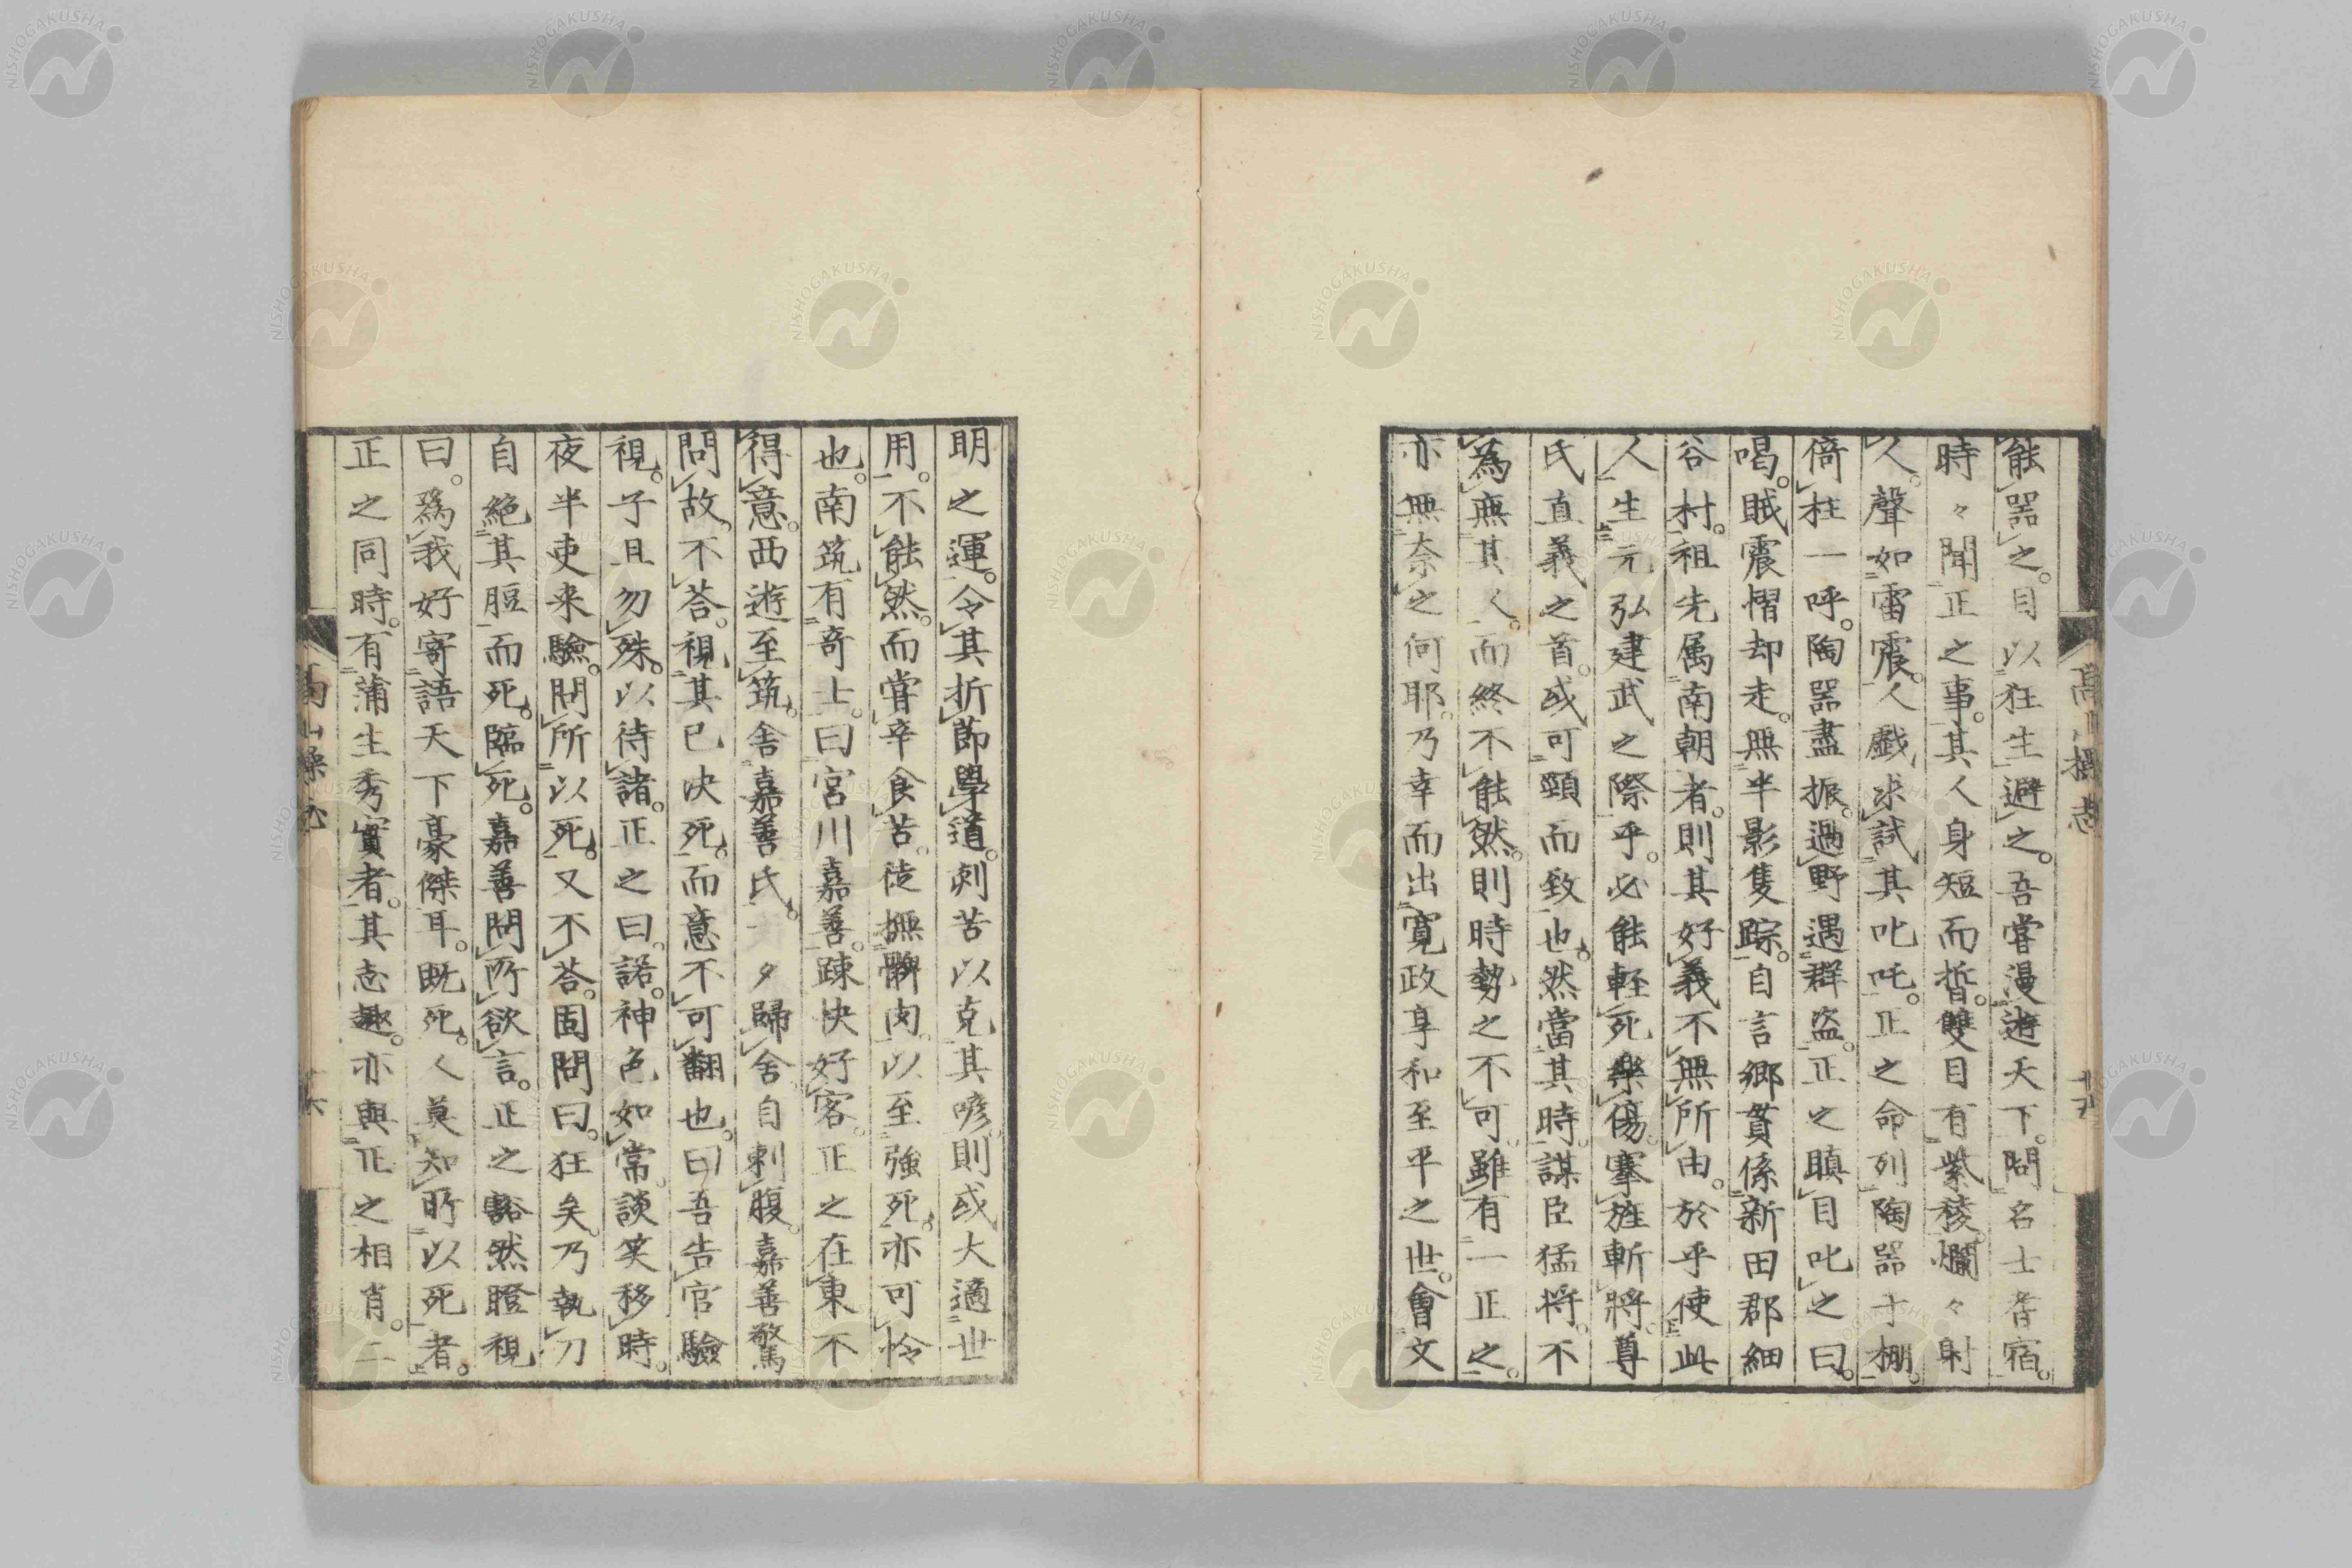 能器之。目以狂生避之。吾嘗漫遊天下。問名士耆宿。
時々聞正之事。其人身短而晳。雙目有紫稜。爛々射
人。聲如雷震。人戲求試其叱吒。正之命列陶器于棚。
倚柱一呼。陶器盡振。過野遇群盗。正之瞋目叱之曰。
喝。賊震慴却走。無半影隻踪。自言鄉貫係新田郡細
谷村。祖先属南朝者。則其好義不無所由。於乎使此
人生元弘建武之際乎。必能軽死樂傷。搴旌斬將。尊
氏直義之首。或可頸而致也。然當其時。謀臣猛将。不
為無其人。而終不能然。則時勢之不可。雖有一正之。
亦無奈之何耶。乃幸而出寛政享和至平之世。會文
明之運。令其折節學道。刻苦以克其喭。則或大適世
用。不能然。而嘗辛食苦。徒撫髀肉。以至強死。亦可怜
也。南筑有奇士。曰宮川嘉善。踈快好客。正之在東不
得意。西遊至筑。舍嘉善氏。一夕歸舍。自刺腹。嘉善驚
問故。不荅。視其已决死。而意不可翻也。曰吾告官驗
視。子且勿殊。以待諸。正之曰。諾。神色如常。談笑移時。
夜半吏来驗。問所以死。又不荅。固問曰。狂矣。乃執刀
自絕其脰而死。臨死。嘉善問所欲言。正之豁然瞪視
曰。為我好寄語天下豪傑耳。既死。人莫知所以死者。
正之同時。有蒲生秀實者。其志趣。亦與正之相肖。二